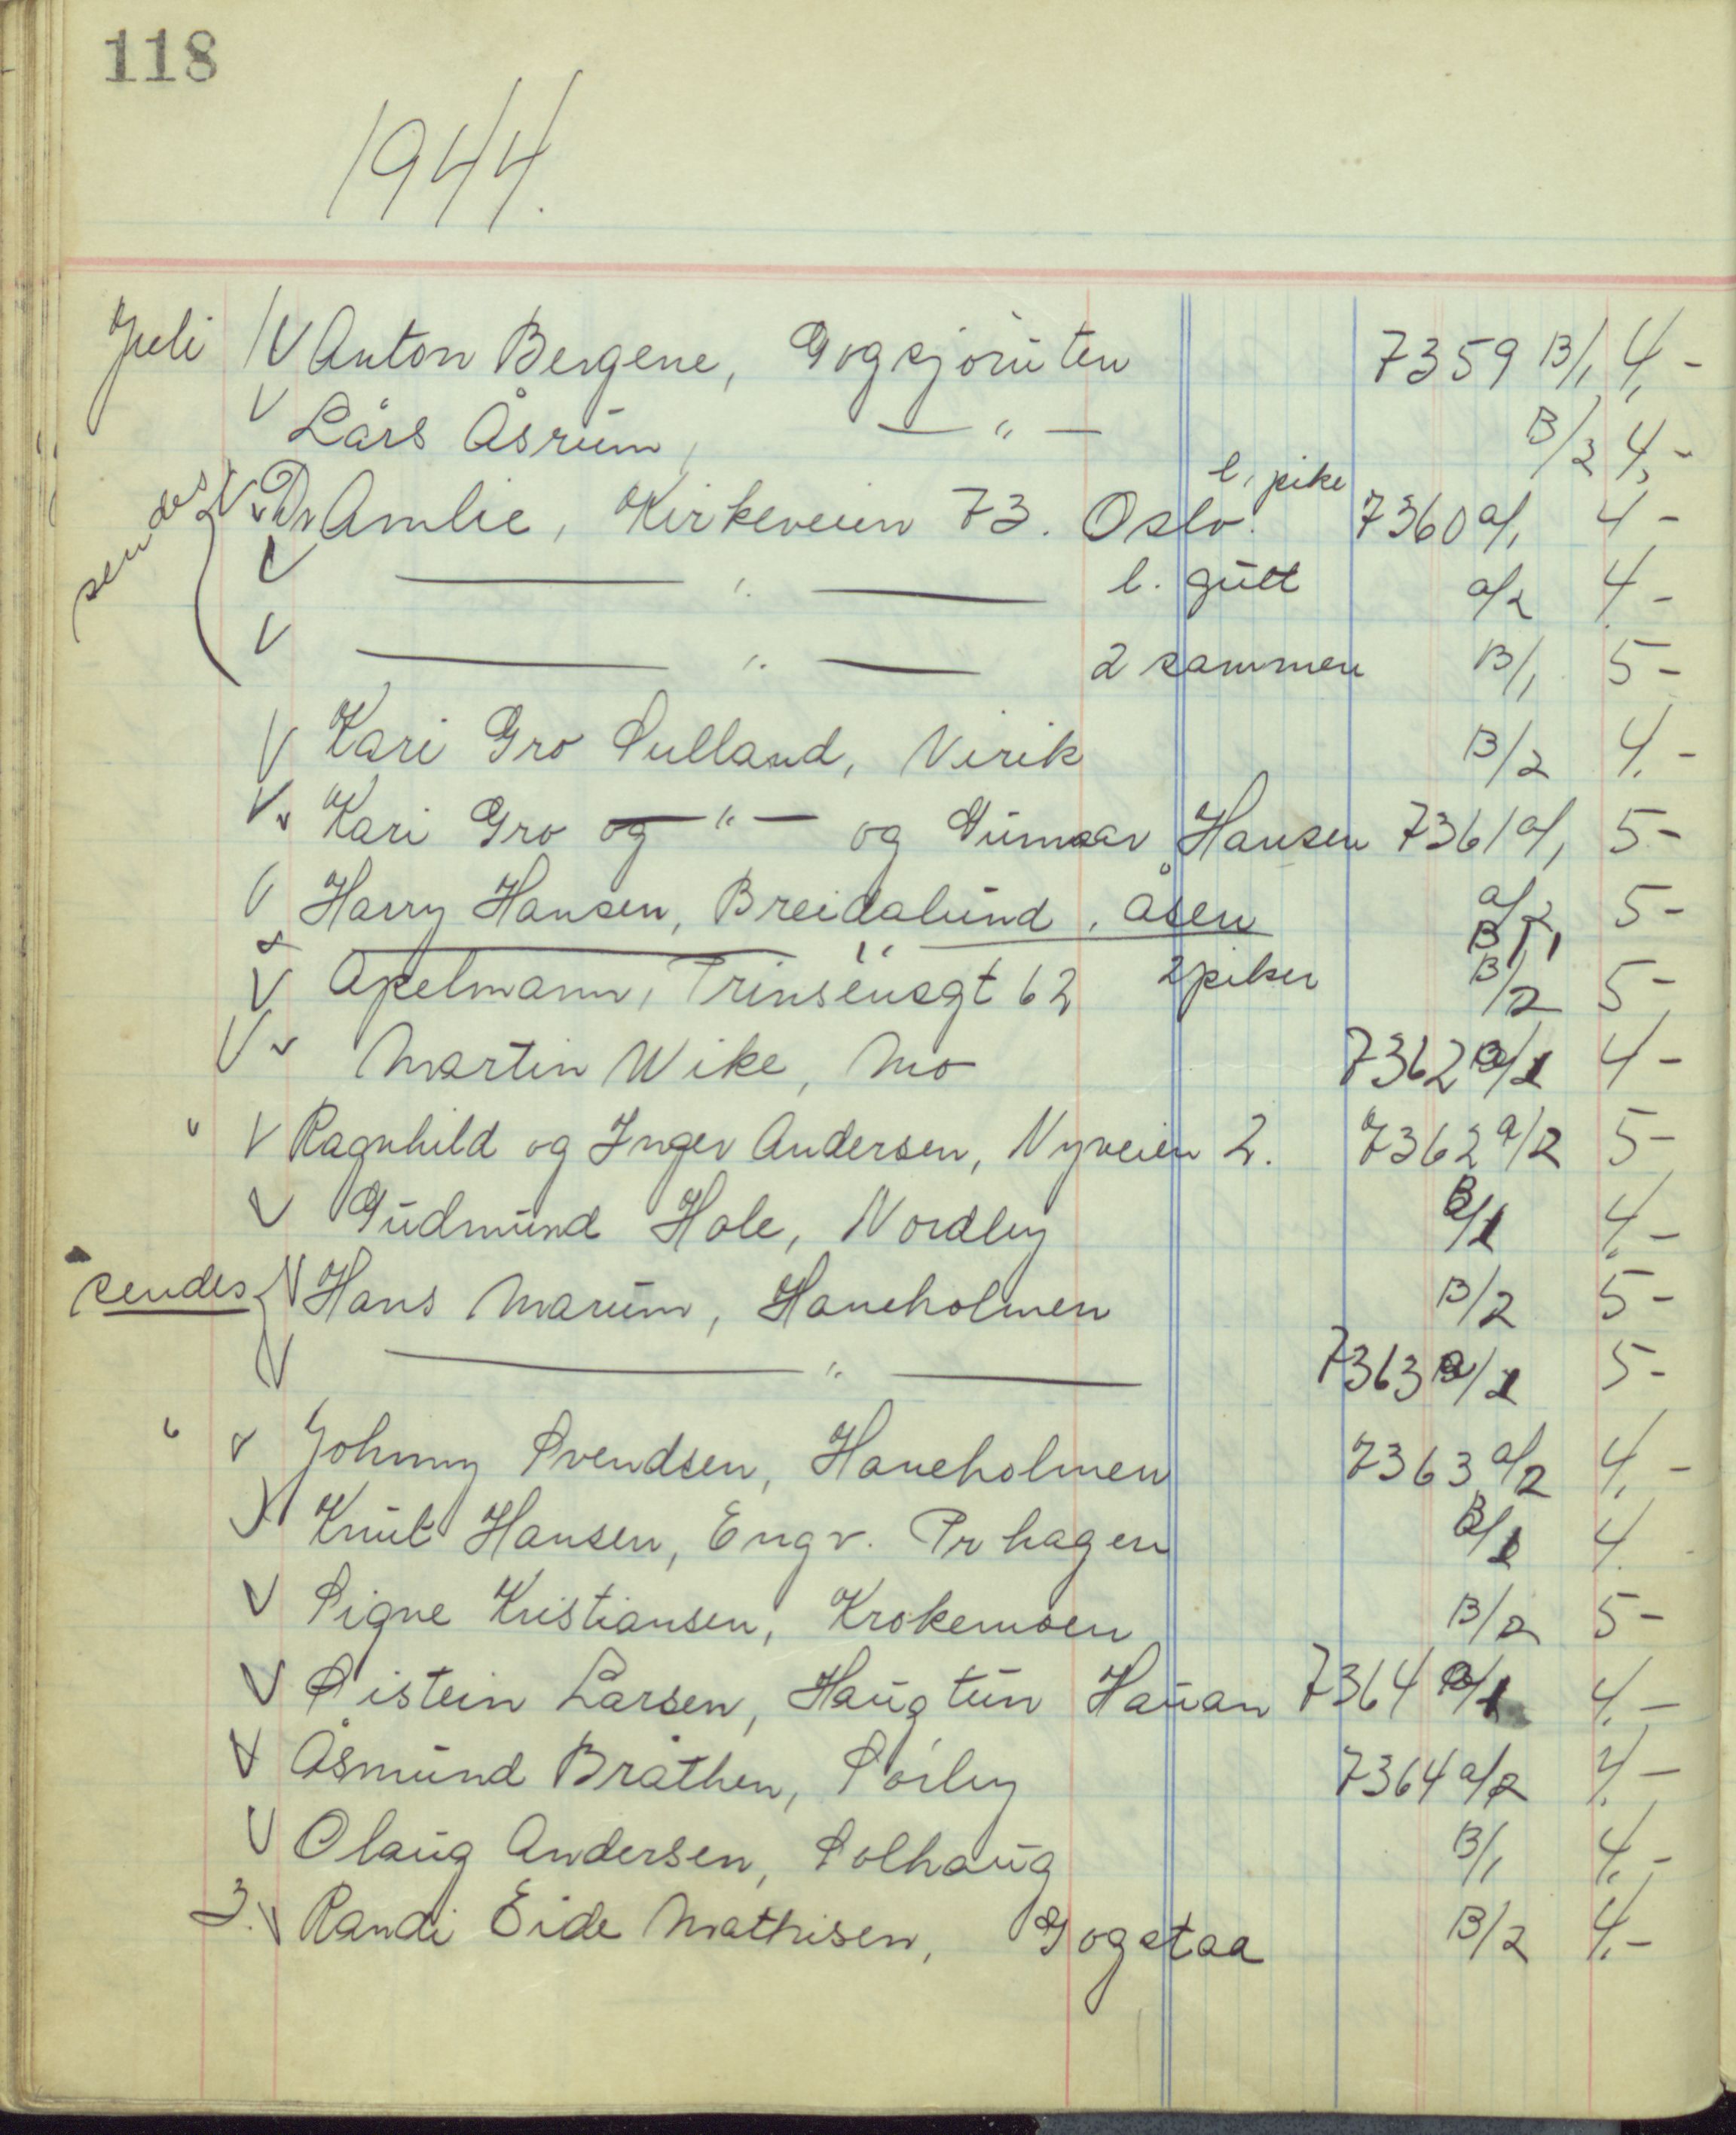 118
1944.
Juli 1 V Anton Bergene, Gogsjöruten 7359 B/1 4,-
V Lårs Åsrum, — " — B/2 4,-
sendes V v Dr Amlie, Kirkeveien 73. Oslo. l. pike 7360 a/1 4-
V — " — l. gutt a/2 4-
V — " — 2 sammen B/1 5-
V Kari Gro Sulland, Virik B/2 4.-
V v Kari Gro og — " — og Gunnar Hansen 7361 a/1 5-
V Harry Hansen, Breidalund, Åsen a/2 5-
— " — B/1
V Apelmann, Prinsensgt 62 2 piker B/2 5-
V v Martin Wike, Mo 7362 a/1 4-
" V Ragnhild og Inger Andersen, Nyveien 2. 7362 a/2 5-
V Gudmund Hole, Nordby B/1 4.-
sendes V Hans Marum, Haneholmen B/2 5-
V — " — 7363 a/1 5-
" v Johnny Svendsen, Haneholmen 7363 a/2 4,-
V Knut Hansen, Engv. Pr hagen B/1 4.
V Signe Kristiansen, Krokemoen B/2 5-
V Øistein Larsen, Haugtun Hauan 7364 a/1 4.-
V Åsmund Bråthen, Sörby 7364 a/2 4.-
V Olaug Andersen, Solhaug B/1 4.-
3. V Randi Eide Mathisen, Gogstaa B/2 4.-